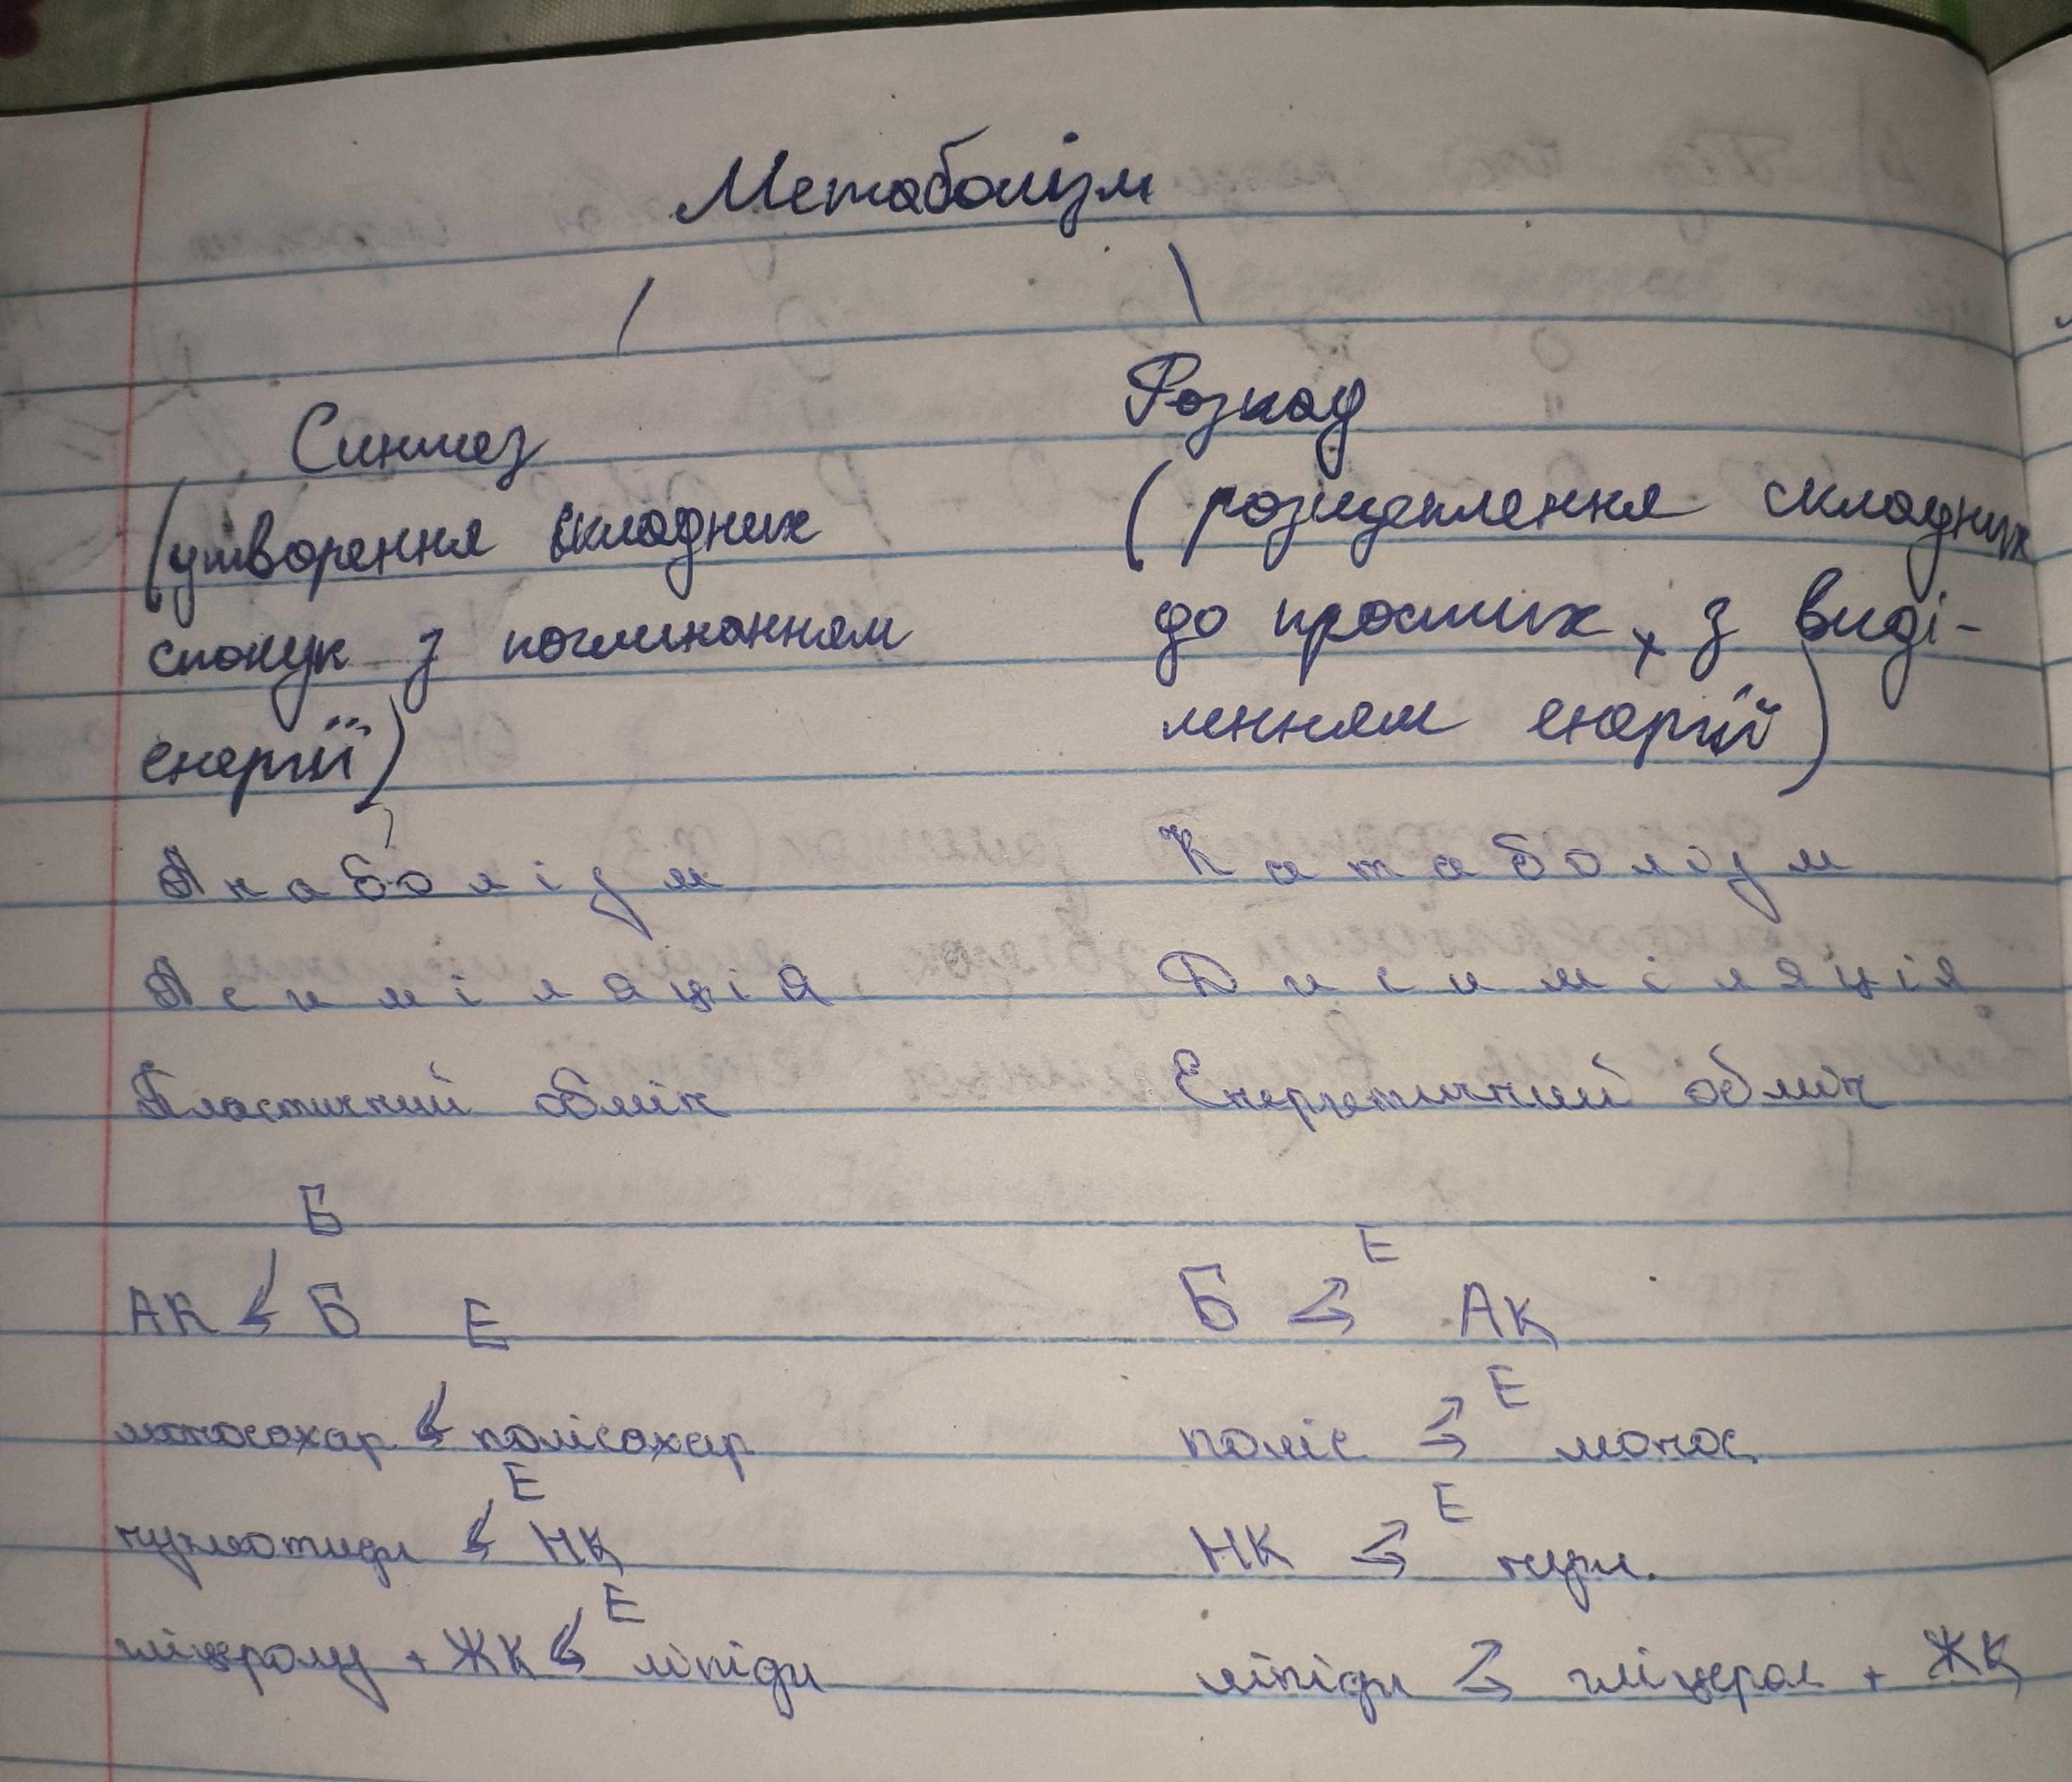 Метаболізм
Синтез
Розклад
(утворення складних
сполук з поглинанням
енергії)
(розщеплення складних
до простих, з виді-
ленням енергії)
Анаболізм
Катаболізм
Асиміляція
Дисиміляція
Пластичний обмін
Енергетичний обмін
Б
АК ↙ Б Е
Б ⇉ Е АК
моносахар ↙ полісахар
поліс ⇉ Е монос
нуклеотиди ↙ Е НК
НК ⇉ Е нукл.
гліцеролу + ЖК ↙ Е ліпіди
ліпіди ⇉ гліцерол + ЖК